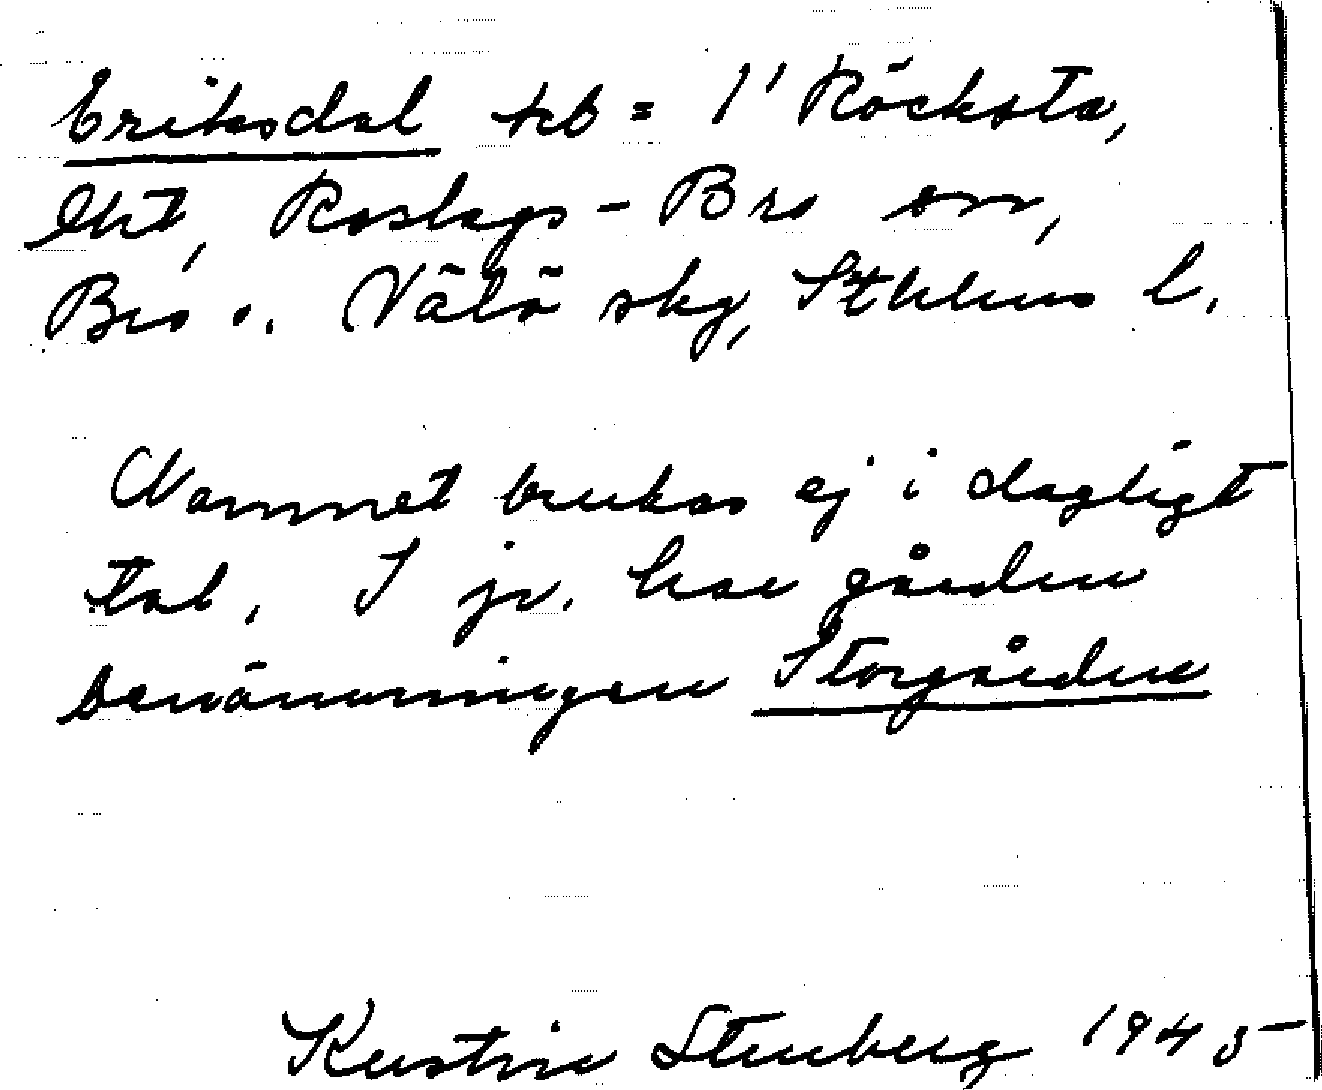 Eriksdal trb = 1' Röcksta,
Ekt, Roslags-Bro sn,
Bro o. Vätö skg, Sthlms l.
Namnet brukas ej i dagligt
tal. I jr. har gården
benämningen Storgården
Kerstin Stenberg 1945